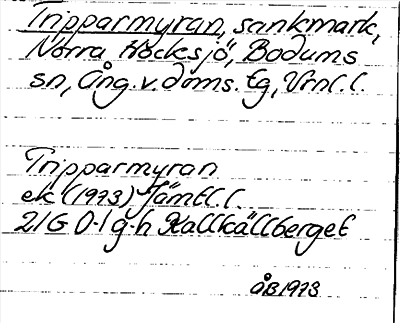 Tripparmyran, sankmark,
Norra Högksjö, Bodums
sn, Ång.v.doms. tg, Vrnl.l.
Tripparmyran
ek (1973) Jämtl.l.
21G 0-1 g-h Kallkällberget
ÅB 1973